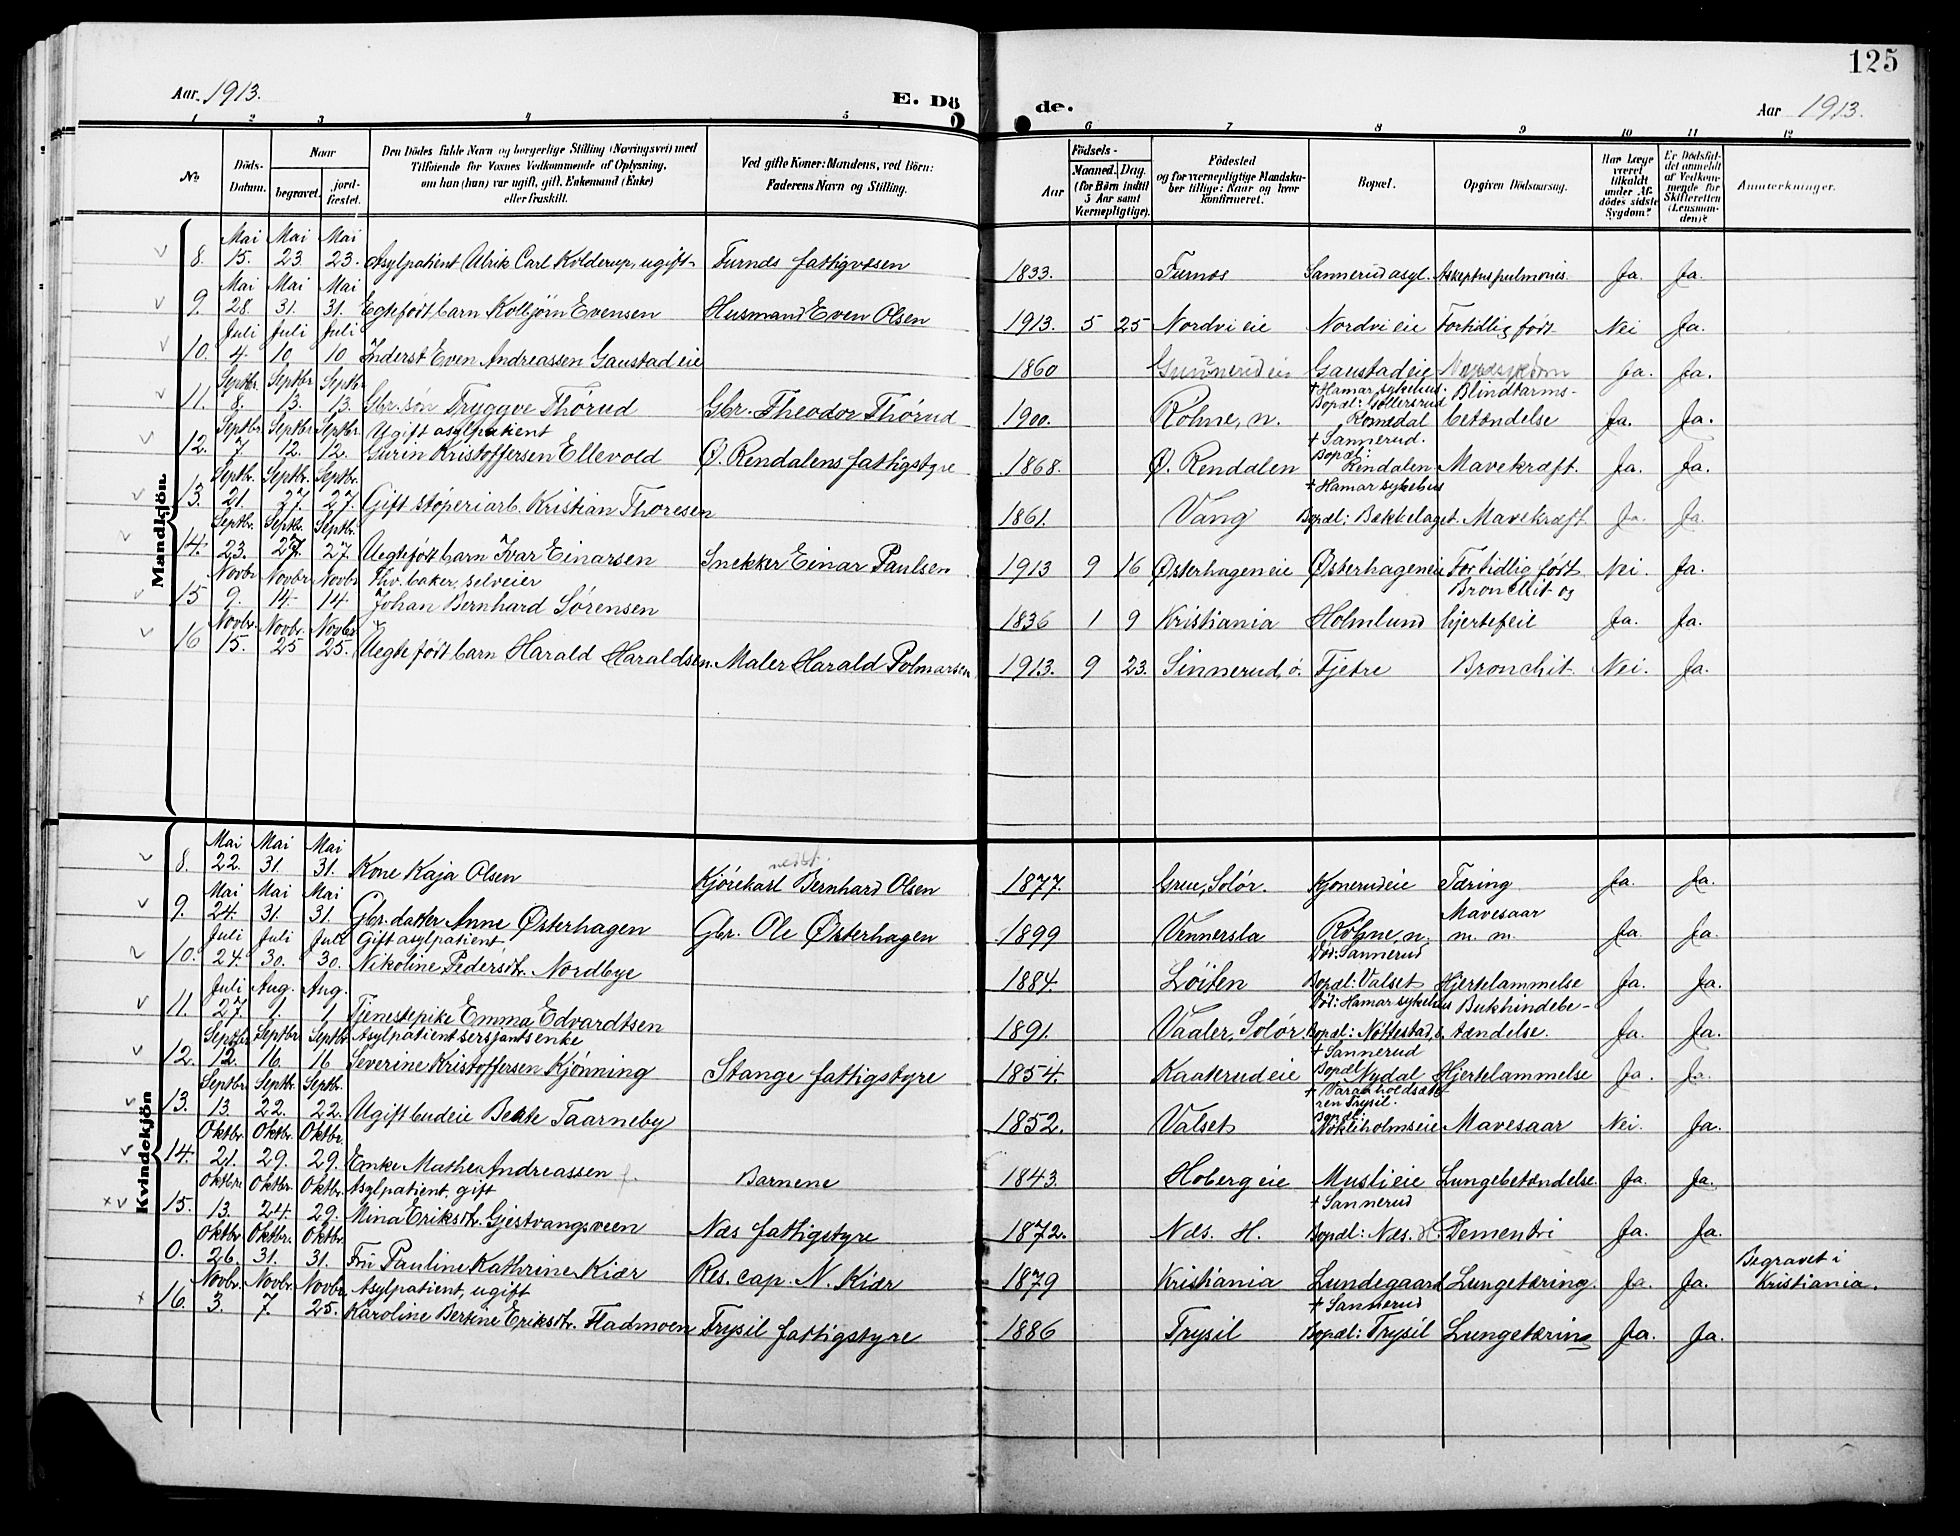 125
Aar 1913. E. Dö de. Aar 1913.
1 2 3 4 5 6 7 8 9 10 11 12
No. Döds-Datum. Naar begravet. jordfæstet. Den Dödes fulde Navn og borgerlige Stilling (Næringsvei) med Tilföiende for Voxnes Vedkommende af Oplysning, om han (hun) var ugift, gift, Enkemand (Enke) eller fraskilt. Ved gifte Koner: Mandens, ved Börn: Faderens Navn og Stilling. Födsels- Aar Maaned. Dag. (for Börn indtil 5 Aar samt Værnepligtige). Födested og for værnepligtige Mandskaber tillige: Naar og hvor konfirmeret. Bopæl. Opgiven Dödsaarsag. Har Læge været tilkaldt under Afdödes sidste Sygdom? Er Dödsfaldet anmeldt af Vedkommende for Skifteretten (Lensmanden)? Anmerkninger.
Mandkjön.
Mai Mai Mai
8. 15. 23 23. Asylpatient Ulrik Carl Kolderup, ugift Furnes fattigvæsen 1833. Furnes Sannerud asyl. pulmonis. Ja. Ja.
Mai Mai Mai
9. 28. 31. 31. Egtefødt barn Kolbjörn Evensen Husmand Even Olsen 1913. 5 25 Nordvi eie Nordvi eie Fortidlig født Nei Ja.
Juli Juli Juli
10. 4. 10 10 Inderst Even Andreassen Gaustadeie 1860 Gunnerud eie Gaustadeie Ja. Ja.
Septbr. Septbr Septbr. † Hamar sykehus. Blindtarms-
11. 8. 13. 13. Gbr. søn Tryggve Thørud Gbr. Theodor Thørud 1900. Rohne, n. Bopæl: Romedal betændelse Ja. Ja.
Septbr Septbr. Septbr. Ugift asylpatient † Sannerud.
12. 7 12. 12. Kristoffersen Ellevold Ø. Rendalens fattigstyre 1868. Ø. Rendalen Bopæl: Rendalen Mavekræft. Ja. Ja.
Septbr. Septbr. Septbr. † Hamar sykehus
13. 21. 27. 27. Gift støperiarb. Kristian Thoresen 1861. Vang Bopæl: Bekkelaget Mavekræft Ja. Ja.
Septbr. Septbr. Septbr.
14. 23. 27. 27. Uegtefødt barn Ivar Einarsen Snekker Einar Paulsen 1913 9 16 Østerhageneie Østerhageneie Fortidlig født Nei. Ja.
Novbr Novbr. Novbr Fhv. baker, selveier Bronchit og
15 9. 14. 14 Johan Bernhard Sørensen 1836 1 9 Kristiania Holmlund hjertefeil Ja. Ja.
Novbr. Novbr. Novbr.
16 15. 25 25. Uegtefødt barn Harald Haraldsen. Maler Harald Polmarsen 1913. 9 23. Sinnerud, ö. Fjetre Bronchit. Nei. Ja.
Kvindekjön
Mai Mai Mai
8. 22. 31. 31. Kone Kaja Olsen Kjørekarl Bernhard Olsen 1877. Grue, Solør. Kjonerudeie Tæring Ja. Ja.
Mai Mai Mai Mavesaar
9. 24. 31. 31. Gbr. datter Anne Østerhagen Gbr. Ole Østerhagen 1899 Vennersla Rohne, n. m. m. Ja. Ja.
Juli Juli Juli Gift asylpatient Død: Sannerud
10. 24. 30. 30. Nikoline Pedersdtr. Nordbye 1884. Løiten Bopæl: Valset Hjertelammelse Ja. Ja.
Juli Aug. Aug. Død: Hamar sykehus Bukhindebe-
11. 27. 1. 1 Tjenestepike Emma Edvardtsen 1891. Vaaler, Solør. Bopæl: Nøttestad, tændelse. Ja. Ja.
Septbr. Septbr. Septbr Asylpatient sersjantsenke † Sannerud
12. 12. 16. 16 Severine Kristoffersen Kjønning Stange fattigstyre 1854. Kaaterudeie Bopæl Nydal Hjertelammelse Ja. Ja.
Septbr. Septbr. Septbr. Trysil.
13. 13. 22. 22. Ugift budeie Beate Taarneby 1852. Valset Bopæl: Mavesaar Nei. Ja.
Oktbr. Oktbr. Oktbr.
14. 21. 29. 29. Enke Mathea Andreassen Barnene 1843. Hoberg eie Muslieie Lungebetændelse Ja. Ja.
Oktbr. Oktbr. Oktbr. Asylpatient, gift † Sannerud
15. 13. 24. 29. Mina Eriksdtr. Gjestvangsveen Næs fattigstyre 1872. Næs. H. Bopæl: Næs. H. Dementi Ja. Ja.
Oktbr Oktbr. Oktbr.
0. 26. 31. 31. Fru Pauline Kathrine Kiær Res. cap. N. Kiær 1879 Kristiania Lundegaard Lungetæring. Ja. Ja. Begravet i Kristiania.
Novbr. Novbr. Novbr. Asylpatient, ugift † Sannerud
16. 3. 7. 25. Karoline Bertine Eriksdtr. Fladmoen Trysil fattigstyre 1886 Trysil Bopæl: Trysil Lungetæring Ja. Ja.